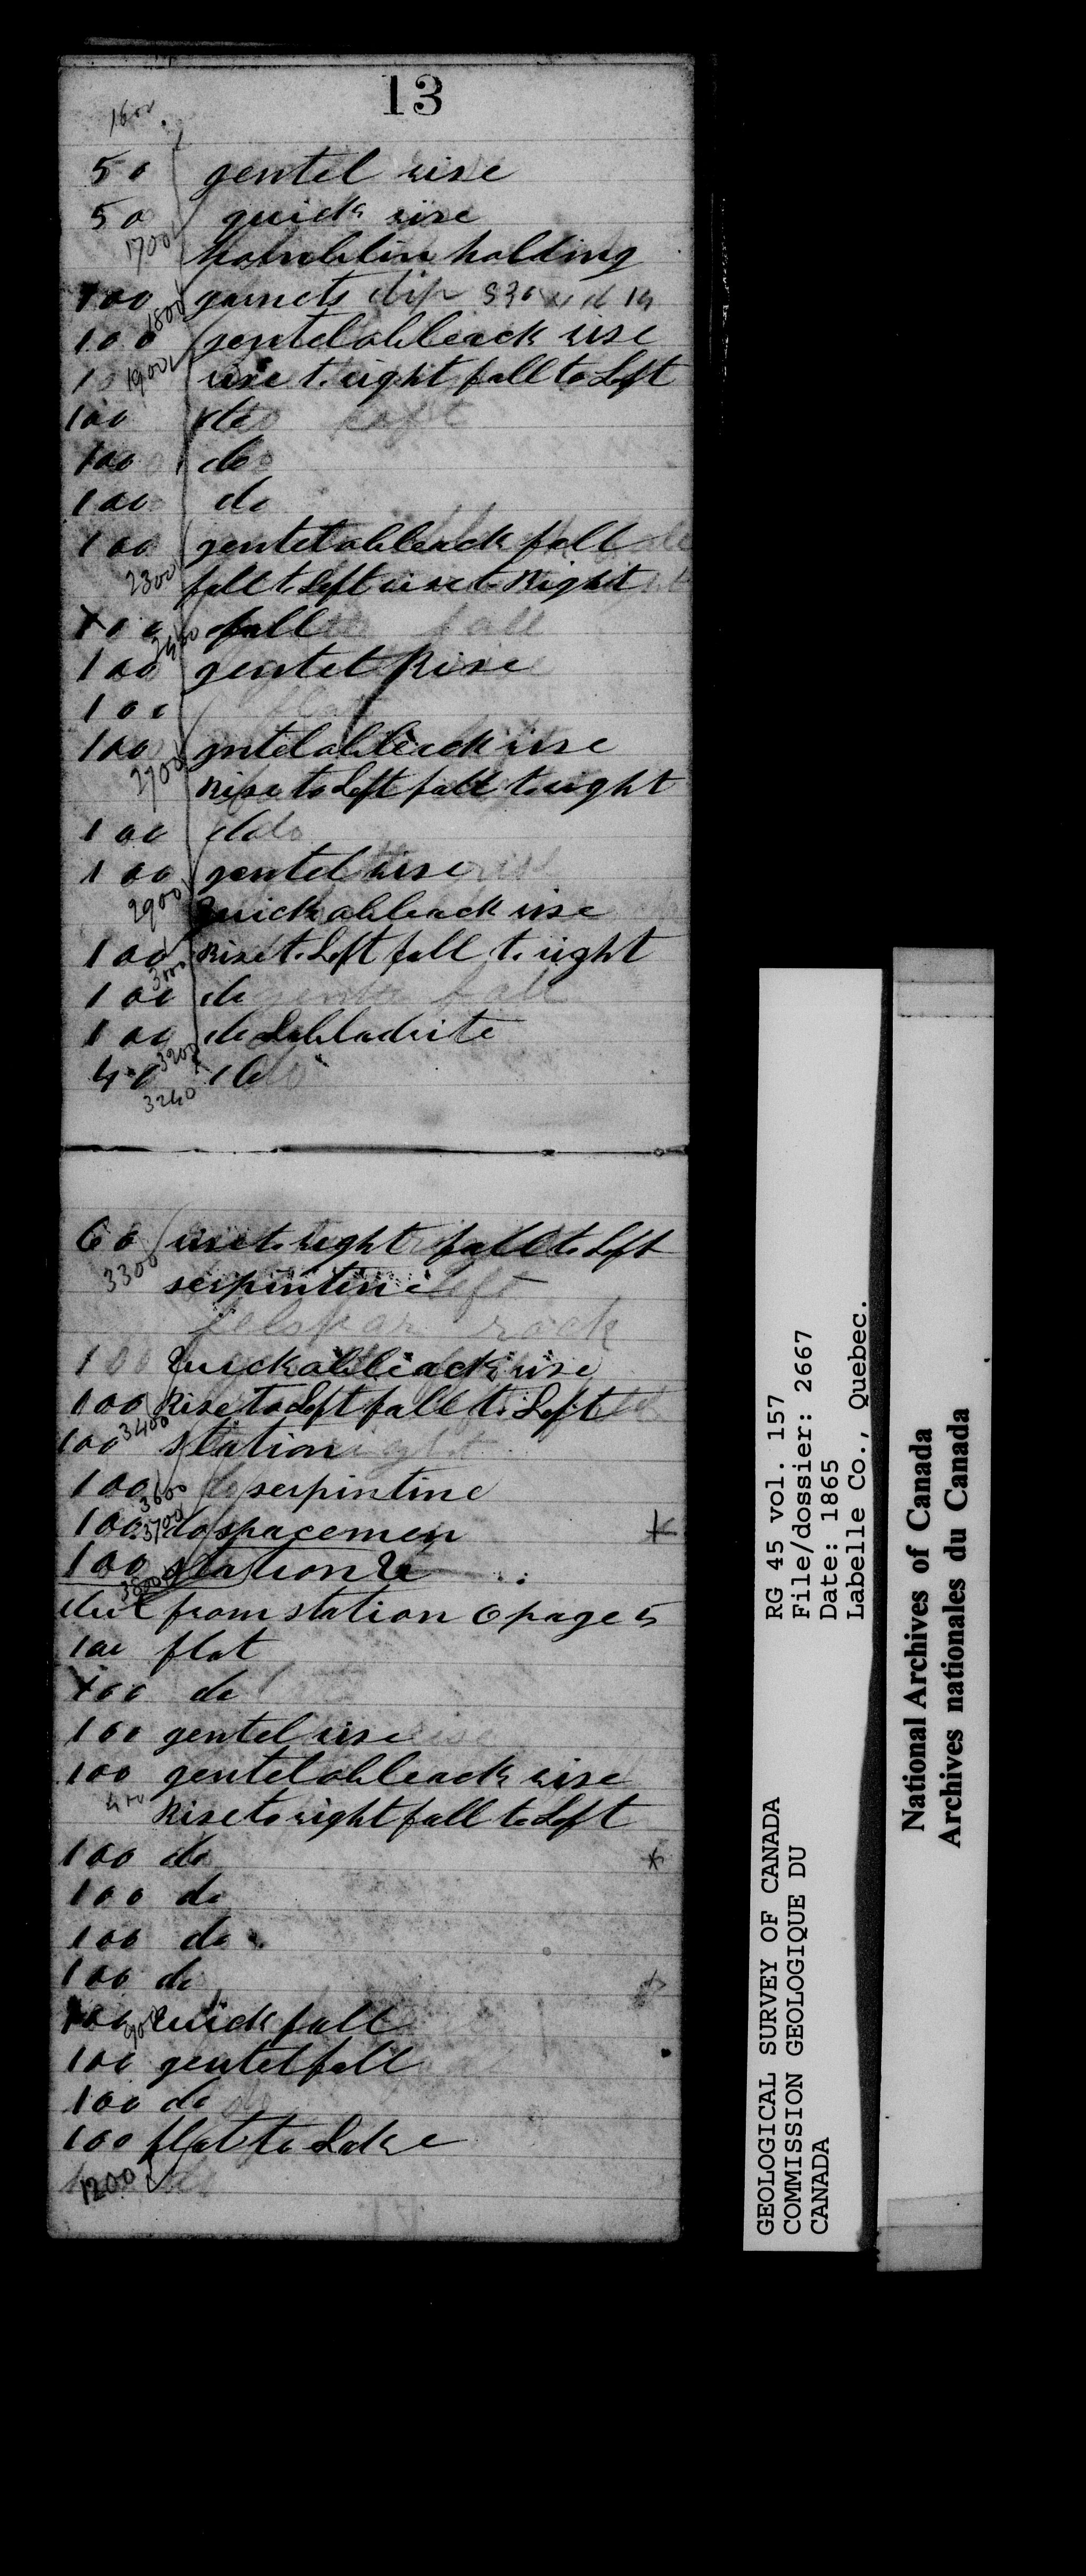 13
1600
50 gentel rise
50 quick rise
1700
hornblin holding
100 garnets dip
1800
100 gentel obleack rise
1900
rise to right fall to Left
100 do
100 do
100 do
100 gentel obleack fall
2300
fall to Left rise to Right
100 fall
100 gentel Rise
100
100 gntel obleack rise
2700
Rise to Left fall to right
100 do
100 gentel rise
2900
quick obleack rise
100 Rise to Left fall to right
3000
100 do
100 do Labladrite
3200
40 do
3240
60 rise to right fall to Left
3300
serpintine
felspar rock
100 quick obleack rise
100 Rise to Left fall to Left
3400
100 station
100 do serpintine
3600
100 do spacemen
3700
100 station
3800
from station 6 page 5
100 flat
100 do
100 gentel rise
100 gentel obleack rise
400
Rise to right fall to Left
100 do
100 do
100 do
100 do
100 quick fall
900
100 gentel fall
100 do
100 flat to Lake
1200
RG 45 vol. 157
File/dossier: 2667
Date: 1865
Labelle Co., Quebec.
GEOLOGICAL SURVEY OF CANADA
COMMISSION GEOLOGIQUE DU
CANADA
National Archives of Canada
Archives nationales du Canada